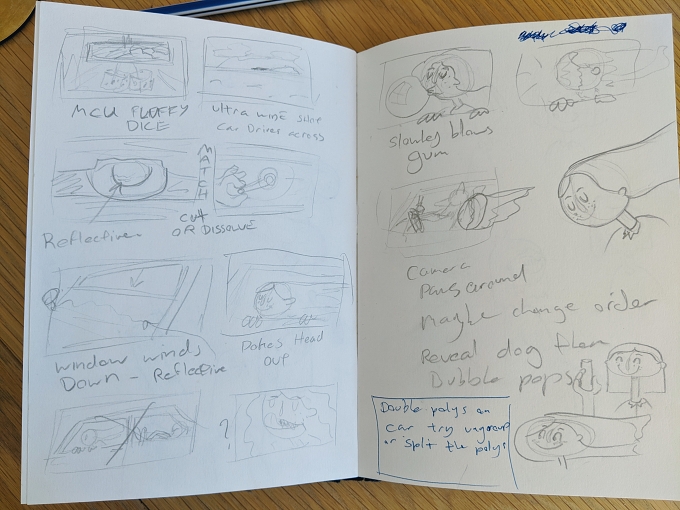 MCU FLUFFY
DICE
ultra wide shot
Car Driver across
MATCH
CUT
OR DISSOLVE
Reflective
window winds
Down - Reflective
Pokes Head
out
?
Slowley blows
gum
Camera
Pans around
Maybe change order
Reveal dog then
Bubble pops
Double polys on
car try ungroup
or split the polys